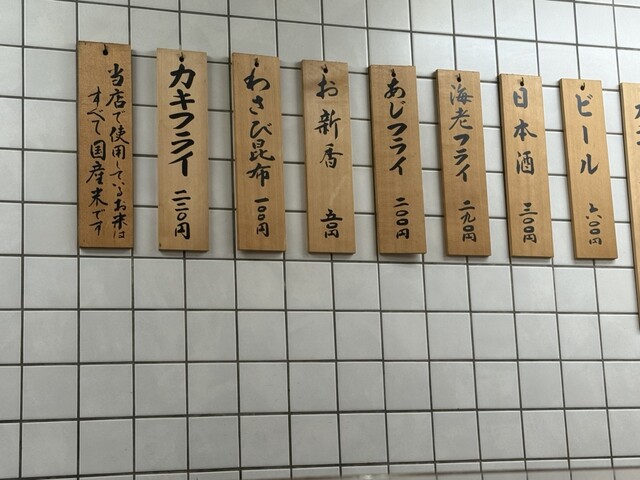 ビール 六〇〇円
日本酒 三〇〇円
海老フライ 二九〇円
あじフライ 二〇〇円
お新香 五〇円
わさび昆布 一〇〇円
カキフライ 二三〇円
当店で使用しているお米は
すべて国産米です